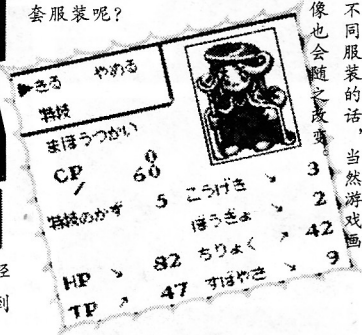 套服装呢?
不同服装的话,当然游戏画
像也会随之改变。
▶きる やめる
特技
まほうつかい
CP 0
/ 60
特技のかず 5
こうげき ↘ 3
ぼうぎょ ↘ 2
HP ↘ 82 ちりょく ↗ 42
TP ↗ 47 すばやさ ↘ 9
到